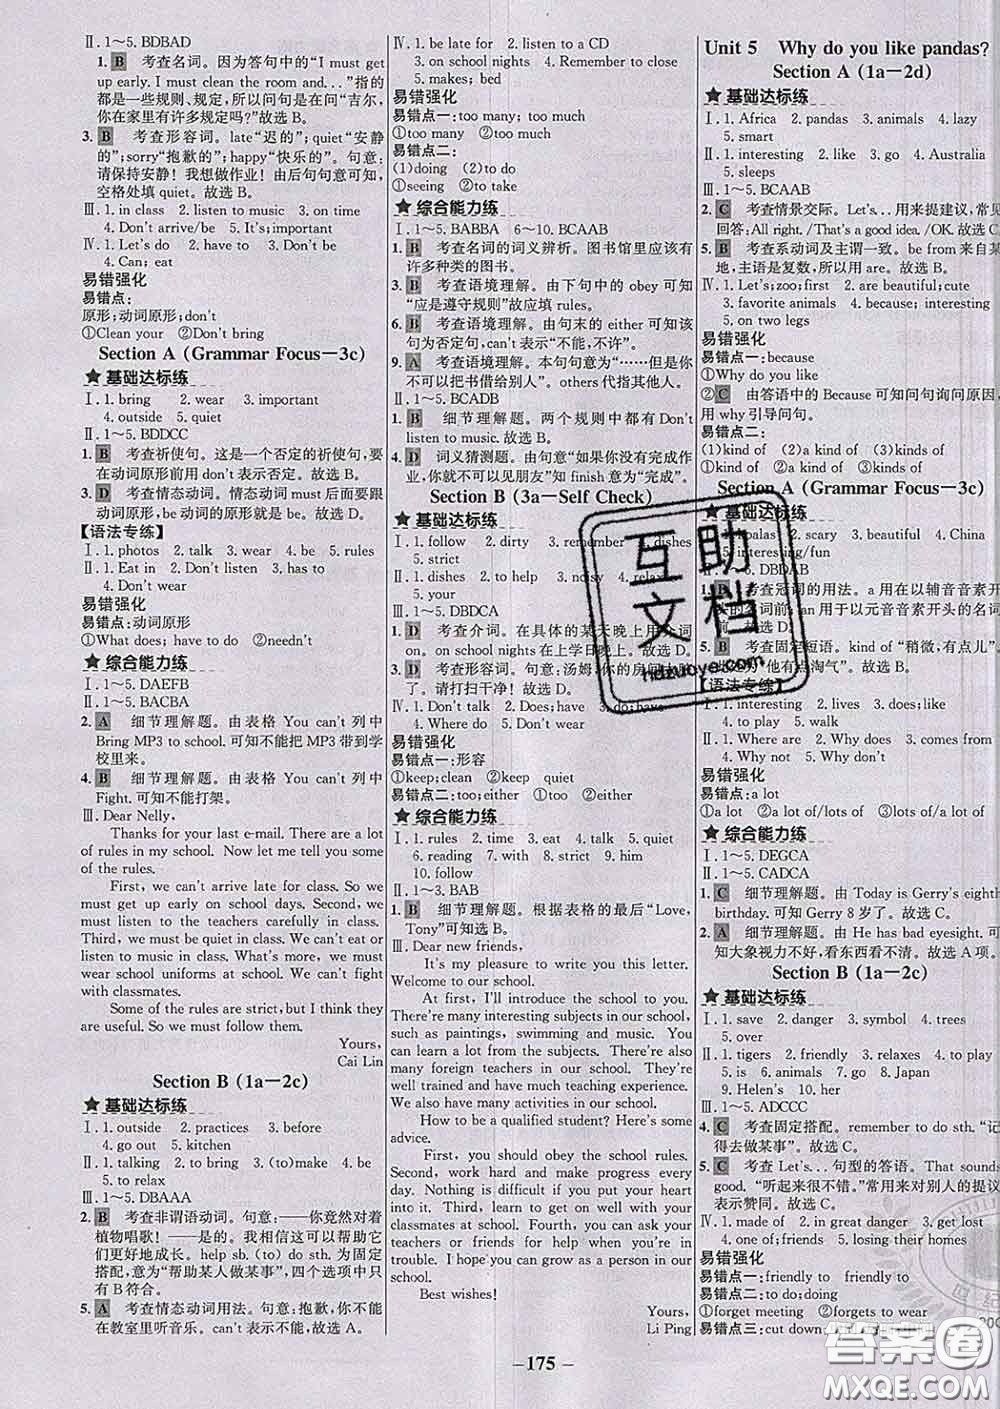 Ⅱ. 1～5. BDBAD
1. B 考查名词。因为答句中的“I must get
up early. I must clean the room and...”指的
都是一些规则、规定,所以问句是在问“吉尔,
你在家里有许多规定吗?”故选B。
3. B 考查形容词。late“迟的”;quiet“安静
的”;sorry“抱歉的”;happy“快乐的”。句意:
请保持安静!我想做作业!由后句句意可知,
空格处填 quiet。故选 B。
Ⅲ. 1. in class 2. listen to music 3. on time
4. Don't arrive/be 5. It's; important
Ⅳ. 1. Let's do 2. have to 3. Don't be
4. Can; eat
易错强化
易错点:
原形;动词原形;don't
①Clean your ②Don't bring
Section A (Grammar Focus—3c)
★ 基础达标练
Ⅰ. 1. bring 2. wear 3. important
4. outside 5. quiet
Ⅱ. 1～5. BDDCC
1. B 考查祈使句。这是一个否定的祈使句,要
在动词原形前用 don't 表示否定。故选 B。
3. D 考查情态动词。情态动词 must 后面要跟
动词原形,be 动词的原形就是 be。故选 D。
【语法专练】
Ⅰ. 1. photos 2. talk 3. wear 4. be 5. rules
Ⅱ. 1. Eat in 2. Don't be 3. has to
4. Don't wear
易错强化
易错点:动词原形
①What does; have to do ②needn't
★ 综合能力练
Ⅰ. 1～5. DAEFB
Ⅱ. 1～5. BACBA
2. A 细节理解题。由表格 You can't 列中
Bring MP3 to school. 可知不能把 MP3 带到学
校里来。
4. B 细节理解题。由表格 You can't 列中
Fight. 可知不能打架。
Ⅲ. Dear Nelly,
Thanks for your last e-mail. There are a lot
of rules in my school. Now let me tell you some
of the rules.
First, we can't arrive late for class. So we
must get up early on school days. Second, we
must listen to the teachers carefully in class.
Third, we must be quiet in class. We can't eat or
listen to music in class. What's more, we must
wear school uniforms at school. We can't fight
with classmates.
Some of the rules are strict, but I think they
are useful. So we must follow them.
Yours,
Cai Lin
Section B (1a—2c)
★ 基础达标练
Ⅰ. 1. outside 2. practices 3. before
4. go out 5. kitchen
Ⅱ. 1. talking 2. to bring 3. (to)make 4. be
5. to relax
Ⅲ. 1～5. DBAAA
2. B 考查非谓语动词。句意:——你竟然对着
植物唱歌!——是的。我相信这可以帮助它
们更好地成长。help sb. (to) do sth. 为固定
搭配,意为“帮助某人做某事”,四个选项中只
有 B 符合。
5. A 考查情态动词用法。句意:抱歉,你不能
在教室里听音乐。can't 表示不能。故选 A。
Ⅳ. 1. be late for 2. listen to a CD
3. on school nights 4. Remember to close
5. makes; bed
易错强化
易错点一:too many; too much
①too many ②too much
易错点二:
(1)doing (2)to do
①seeing ②to take
★ 综合能力练
Ⅰ. 1～5. BABBA 6～10. BCABB
1. B 考查名词的词义辨析。图书馆里应该有
许多种类的图书。
3. B 考查语境理解。由下句中的 obey 可知
“应是遵守规则”故应填 rules。
6. B 考查语境理解。由句末的 either 可知该
句为否定句,can't 表示“不能,不许”。
9. A 考查语境理解。本句句意为“……但是你
不可以把书借给别人”。others 代指其他人。
Ⅱ. 1～5. BCADB
1. B 细节理解题。两个规则中都有 Don't
listen to music. 故选 B。
4. D 词义猜测题。由句意“如果你没有完成作
业,你就不可以见朋友”知 finish 意为“完成”。
Section B (3a—Self Check)
★ 基础达标练
Ⅰ. 1. follow 2. dirty 3. remember 4. dishes
5. strict
Ⅱ. 1. dishes 2. to help 3. noisy 4. relax
5. your
Ⅲ. 1～5. DBDCA
1. D 考查介词。在具体的某天晚上用介词
on。on school nights 在上学日晚上。故选 D。
3. D 考查形容词。句意:汤姆,你的房间太脏
了。请打扫干净!故选 D。
Ⅳ. 1. Don't talk 2. Does; have 3. do; have
4. Where do 5. Don't wear
易错强化
易错点一:形容
①keep; clean ②keep quiet
易错点二:too; either ①too ②either
★ 综合能力练
Ⅰ. 1. rules 2. time 3. eat 4. talk 5. quiet
6. reading 7. with 8. strict 9. him
10. follow
Ⅱ. 1～3. BAB
1. B 细节理解题。根据表格的最后“Love,
Tony”可知选 B。
Ⅲ. Dear new friends,
It's my pleasure to write you this letter.
Welcome to our school.
At first, I'll introduce the school to you.
There're many interesting subjects in our school,
such as paintings, swimming and music. You
can learn a lot from the subjects. There're also
many foreign teachers in our school. They're
well trained and have much teaching experience.
We also have many clubs in our school.
How to be a qualified student? Here's some
advice.
First, you should obey the school rules.
Second, work hard and make progress every
day. Nothing is difficult if you put your heart
into it. Third, learn to get on well with your
classmates at school. Fourth, you can ask
teachers or friends for help when you're in
trouble. I hope you can grow as a person in our
school.
Best wishes!
Yours,
Li Ping
Unit 5 Why do you like pandas?
Section A (1a—2d)
★ 基础达标练
Ⅰ. 1. Africa 2. pandas 3. animals 4. lazy
5. smart
Ⅱ. 1. interesting 2. like 3. go 4. Australia
5. sleeps
Ⅲ. 1～5. BCAAB
2. C 考查情景交际。Let's... 用来提建议,常见
回答: All right. /That's a good idea. /OK. 故选 C
5. B 考查系动词及主谓一致。be from 来自某
地,主语是复数,所以用 are。故选 B。
Ⅳ. 1. Let's; zoo; first 2. are beautiful; cute
3. favorite animals 4. because; interesting
5. on two legs
易错强化
易错点一:because
①Why do you like
②C 由答语中的 Because 可知问句询问原因,
用 why 引导问句。
易错点二:
(1)kind of (2)a kind of (3)kinds of
①kind of ②a kind of ③kinds of
Section A (Grammar Focus—3c)
★ 基础达标练
Ⅰ. 1. koalas 2. scary 3. beautiful 4. China
5. interesting/fun
Ⅱ. 1～5. DBDAB
1. D 考查冠词的用法。a 用在以辅音音素开
头的名词前; an 用于以元音音素开头的名词
前。故选 D。
5. B 考查固定短语。kind of “稍微,有点儿”。
此处意为“他有点淘气”。故选 B。
【语法专练】
Ⅰ. 1. interesting 2. lives 3. does 4. are
4. to play 5. walk
Ⅱ. 1. Where are 2. Why does 3. comes from
4. Why not 5. Why don't
易错强化
易错点:a lot
①a lot ②a lot of/lots of ③lots of/a lot of
★ 综合能力练
Ⅰ. 1～5. DEGCA
Ⅱ. 1～5. CADCA
1. C 细节理解题。由 Today is Gerry's eighth
birthday. 可知 Gerry 8 岁了。故选 C。
2. A 细节理解题。由 He has bad eyesight. 可
知大象视力不好,看东西看不清。故选 A 项。
Section B (1a—2c)
★ 基础达标练
Ⅰ. 1. save 2. danger 3. symbol 4. trees
5. over
Ⅱ. 1. tigers 2. friendly 3. relaxes 4. to play
5. is 6. an 7. as 8. Japan
9. Helen's 10. her
Ⅲ. 1～5. ADCCC
4. C 考查固定搭配。remember to do sth. “记
得去做某事”。故选 C。
5. C 考查 Let's... 句型的答语。That sounds
good. “听起来很不错。”常用来对别人的提议
表示赞同。故选 C。
Ⅳ. 1. made of 2. in great danger 3. get lost
4. one of; friends 5. losing their homes
易错强化
易错点一:friendly to friendly to
易错点二:to do; doing
①forget meeting ②forgets to wear
易错点三:cut down
—175—
互助
文档
hdzuoye.com
答案圈
MXQE.COM